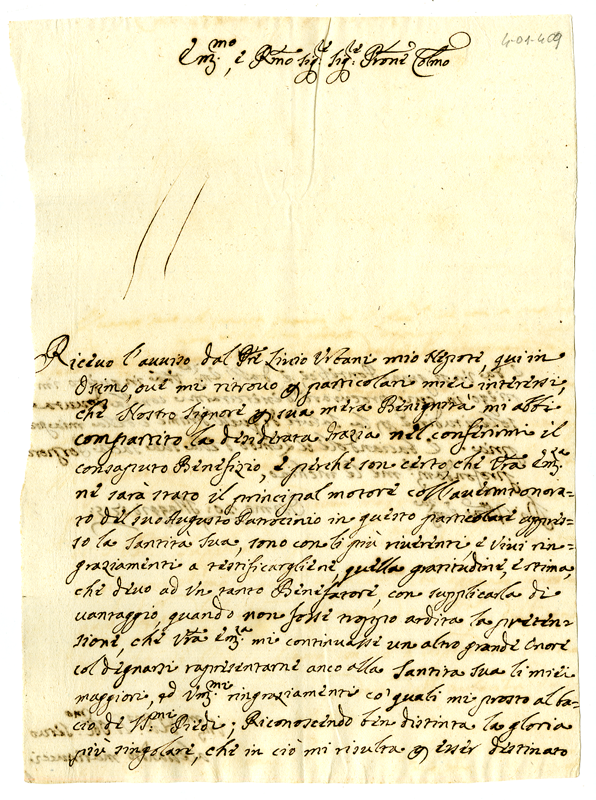 4-01-409
Em.mo, e Rmo Sig.re Sig.re Prone Colmo
Ricevo l'avviso dal Pre Livio Urbani mio Nepote, qui in
Osimo, ove mi ritrovo per particolari miei interessi,
che Nostro Signore per sua mera Benignità mi abbi
compartito la desiderata Grazia nel conferirmi il
consaputo Benefizio, e perche son certo che Vra Em.za
ne sarà stato il principal motore coll'avermi onora=
to del suo Augusto Patrocinio in questo particolare appres=
so la Santità Sua, sono con li più riverenti e vivi rin=
graziamenti a testificargliene quella gratitudine, e stima,
che devo ad un tanto Benefatore, con supplicarla di
vantaggio, quando non fosse troppo ardita la preten=
sione, che Vra Em.za mi continuasse un altro grande Onore
col degnarsi rapresentarne anco alla Santità Sua li miei
maggiori, ed Um.mi ringraziamenti co' quali mi prosto al ba=
cio de SS.mi Piedi; Riconoscendo ben distinta la gloria
più singolare, che in ciò mi risulta per esser destinato